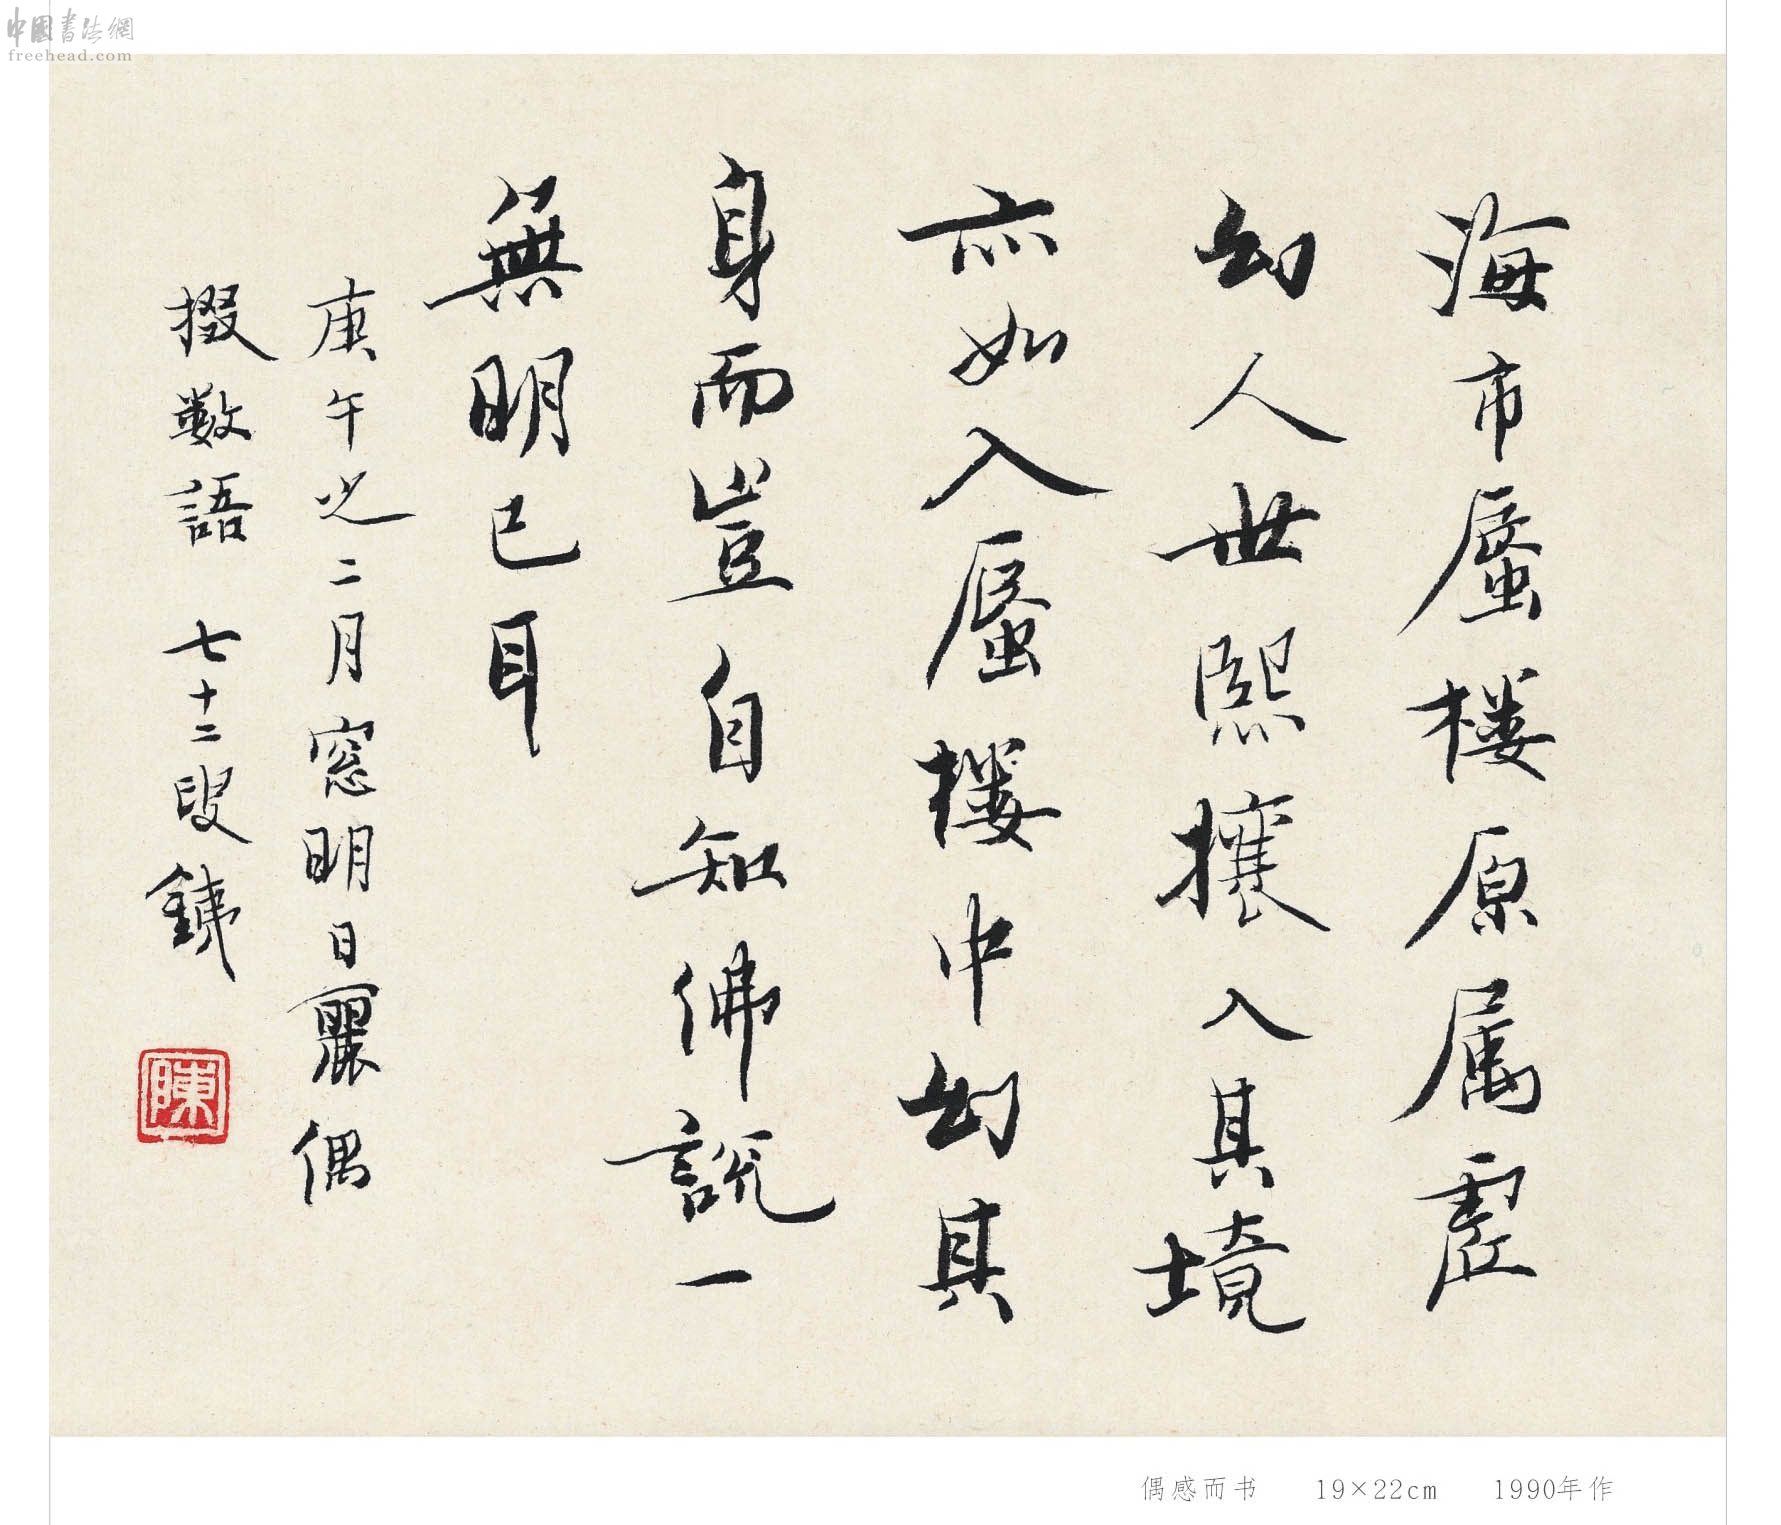 中國書法網
freehead.com
海市蜃楼原属虛
幻人世熙攘入其境
亦如入蜃樓中幻其
身而豈自知佛說一
無明已耳
庚午之二月窓明日麗偶
掇数語 七十二叟銕
陳
偶感而书 19×22cm 1990年作